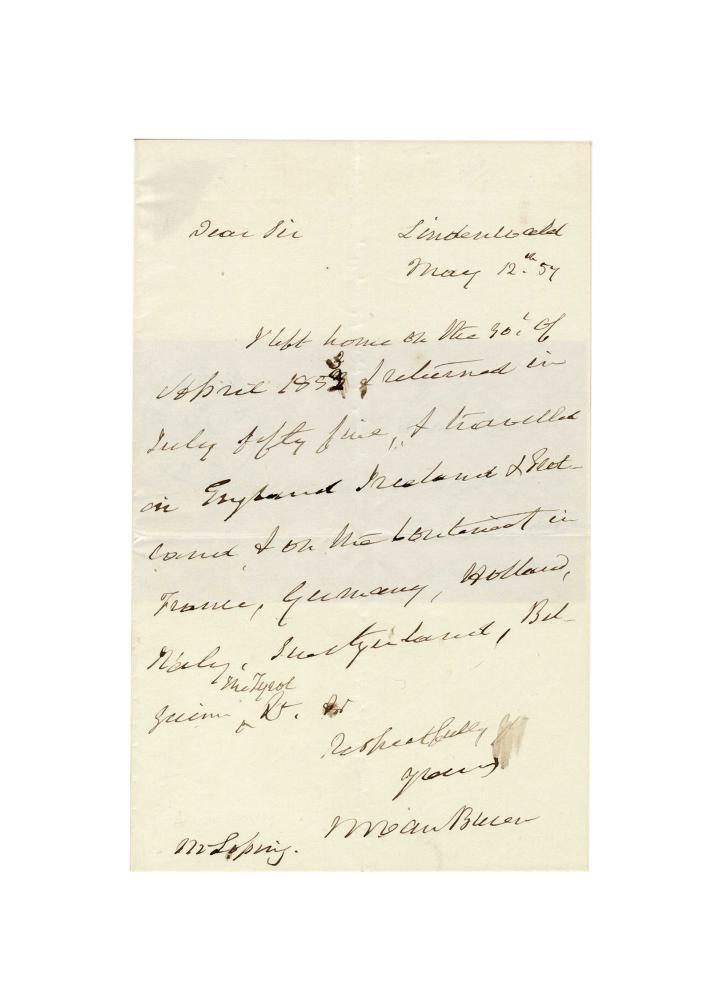 Dear Sir Lindenwald
May 12.th 57
I left home on the 30t of
April 1853 & returned in
July fifty five, & travelled
in England Ireland & Scot-
land & on the Continent in
France, Germany, Holland,
Italy, Switzerland, Bel-
gium, The Tyrol &c. &c
Respectfully
yours
M Van Buren
Mr